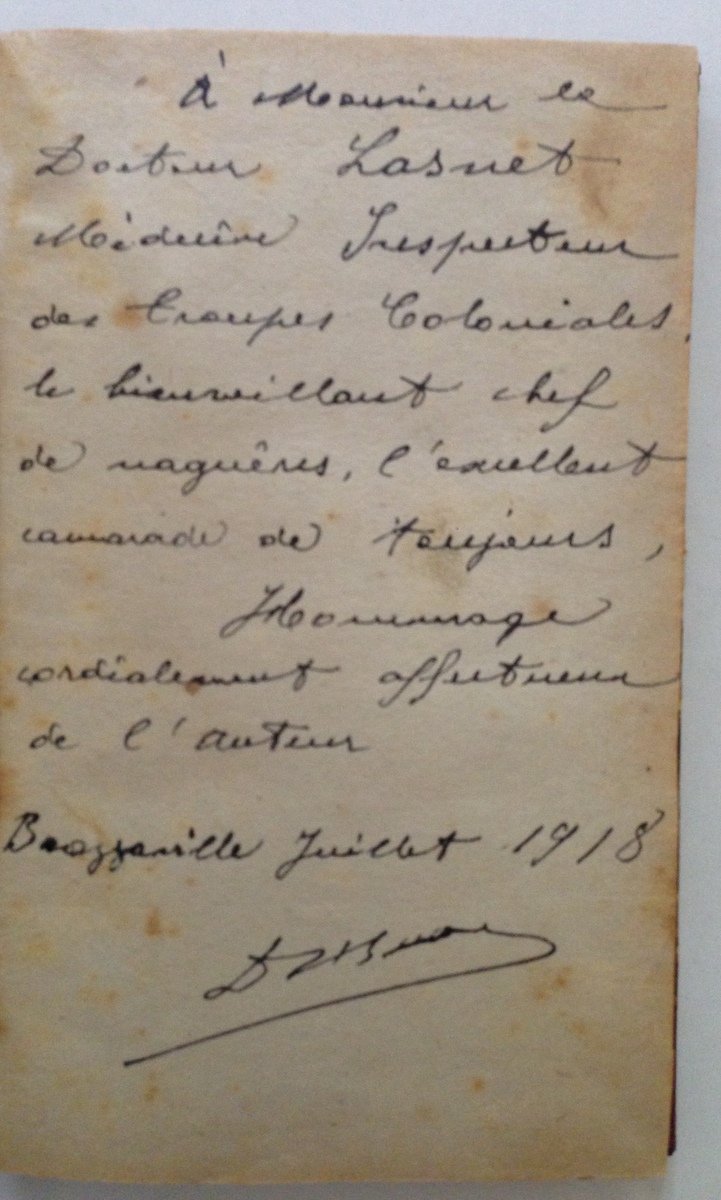 À Monsieur le
Docteur Lasnet
Médecin Inspecteur
des troupes Coloniales,
le bienveillant chef
de naguères, l'excellent
camarade de toujours,
Hommage
cordialement affectueux
de l'auteur
Brazzaville Juillet 1918